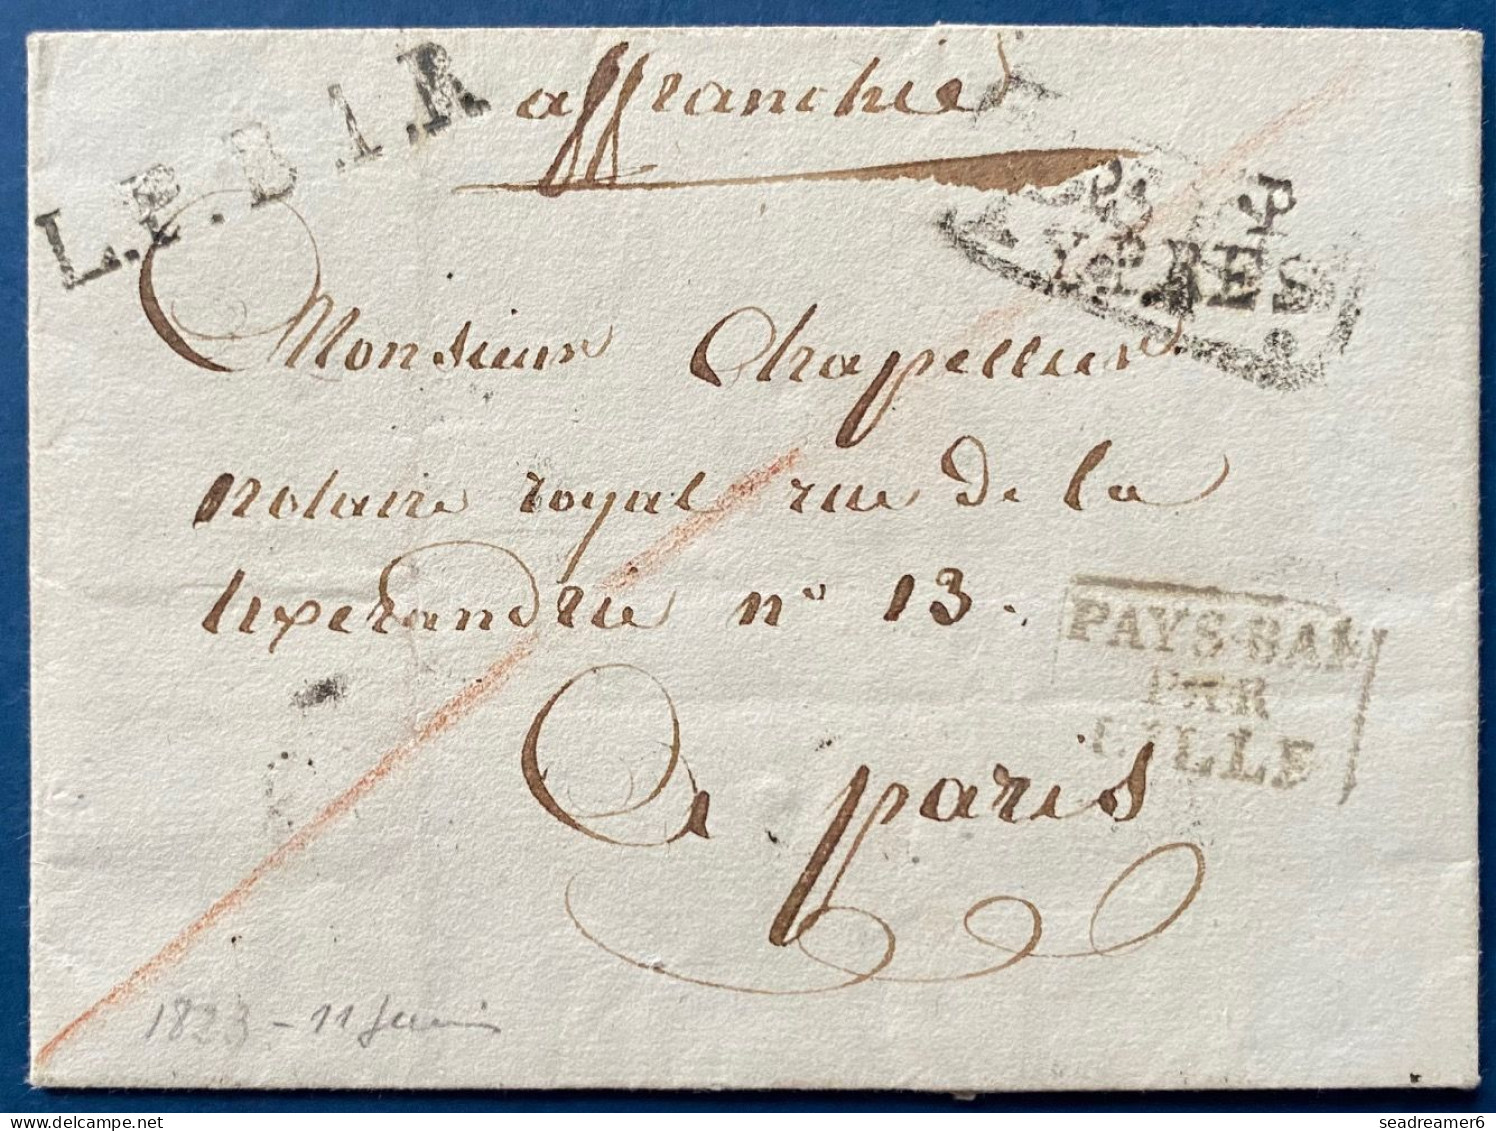 affranchie
L.P.B.1.R
P.P.
YPRES
Monsieur Chapellier
notaire royal rue de la
tixerandrie n° 13.
PAYS-BAS
PAR
LILLE
A paris
1823 - 11 Juin
seadreamer6
delcampe.net